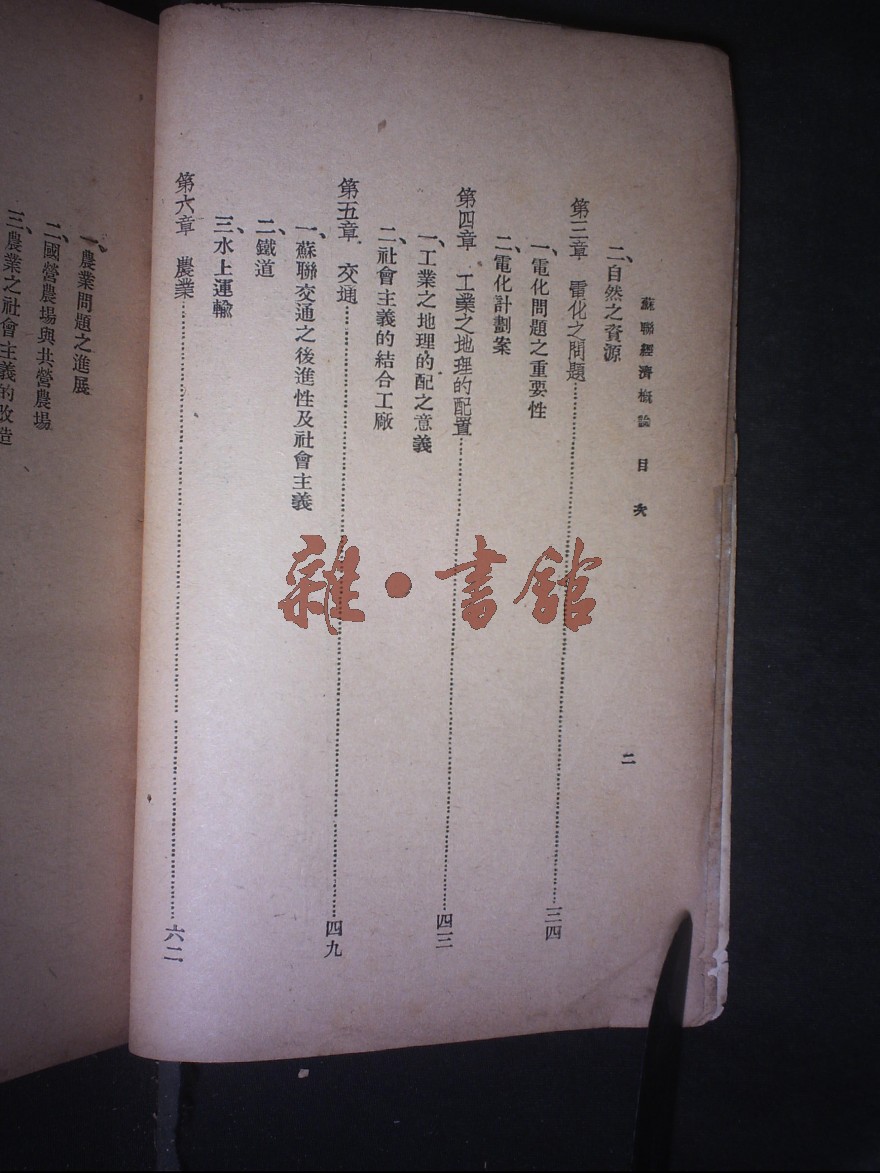 蘇聯經濟概論 目次
二
二、自然之資源
第三章 電化之問題……三四
一、電化問題之重要性
二、電化計劃案
第四章 工業之地理的配置……四三
一、工業之地理的配之意義
二、社會主義的結合工廠
第五章 交通……四九
一、蘇聯交通之後進性及社會主義
二、鐵道
三、水上運輸
第六章 農業……六二
一、農業問題之進展
二、國營農場與共營農場
三、農業之社會主義的改造
雜·書館